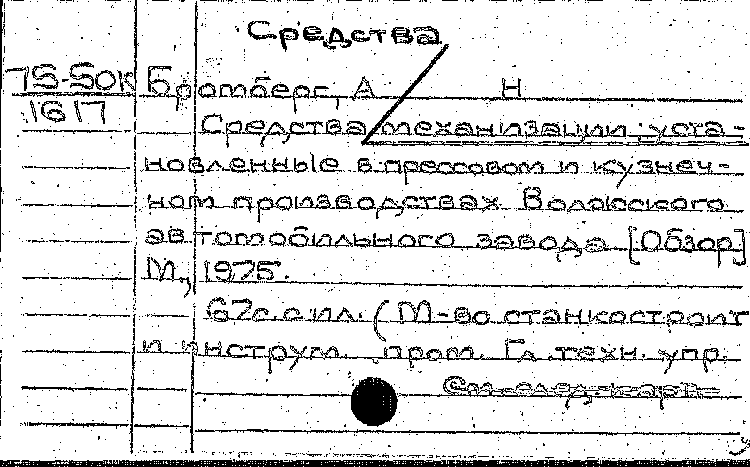 Средства
75-50к Бромберг, А Н
1617
Средства механизации, уста-
новленные в прессовом и кузнеч-
ном производствах Волжского
автомобильного завода [Обзор]
М., 1975.
62с. с ил. (М-во станкостроит
и инструм. пром. Гл. техн. упр.
См. след. карт.